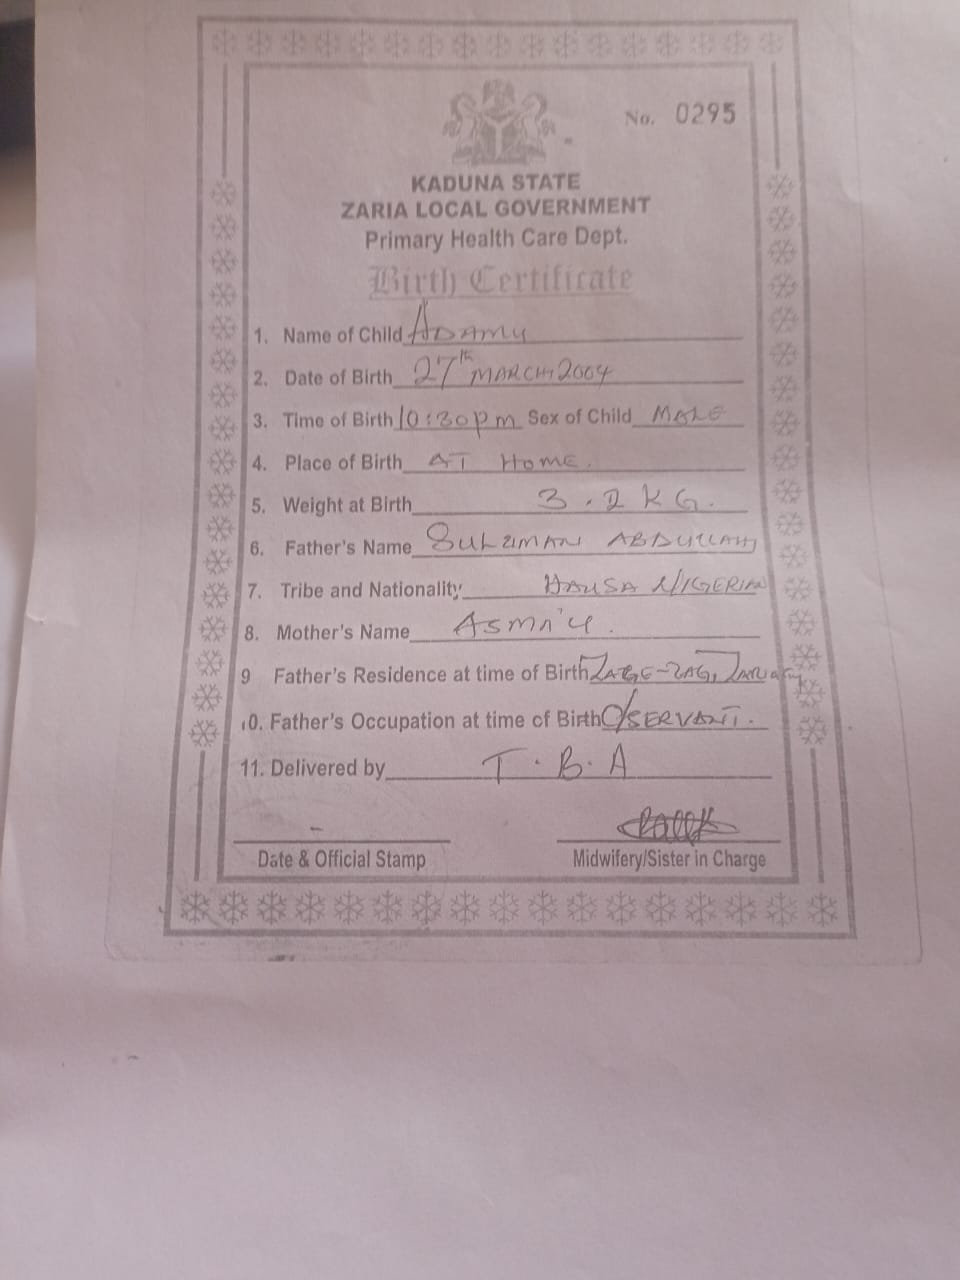 No. 0295
KADUNA STATE
ZARIA LOCAL GOVERNMENT
Primary Health Care Dept.
Birth Certificate
1. Name of Child ADAMU
2. Date of Birth 27th MARCH, 2004
3. Time of Birth 10:30pm Sex of Child MALE
4. Place of Birth AT HOME.
5. Weight at Birth 3.2 KG.
6. Father's Name ABDULLAHI
7. Tribe and Nationality HAUSA NIGERIAN
8. Mother's Name ASMA'U.
9 Father's Residence at time of Birth
10. Father's Occupation at time of Birth C/SERVANT.
11. Delivered by T.B.A
Date & Official Stamp Midwifery/Sister in Charge